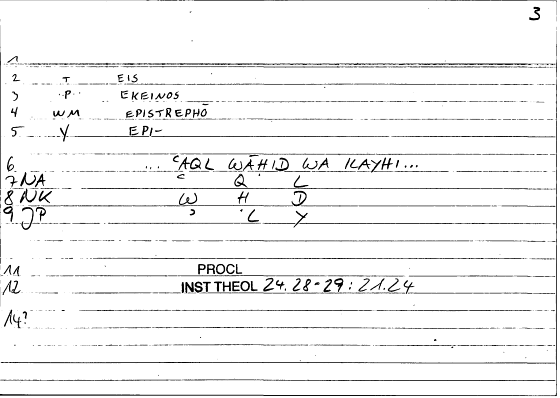 3
1
2 T EIS
3 P EKEINOS
4 WM EPISTREPHŌ
5 Y EPI-
6 ... ʿAQL WĀHID WA ILAYHI...
7 NA ʿ Q L
8 NK W H D
9 JP ʾ L Y
11 PROCL
12 INST THEOL 24.28-29: 21.24
14?